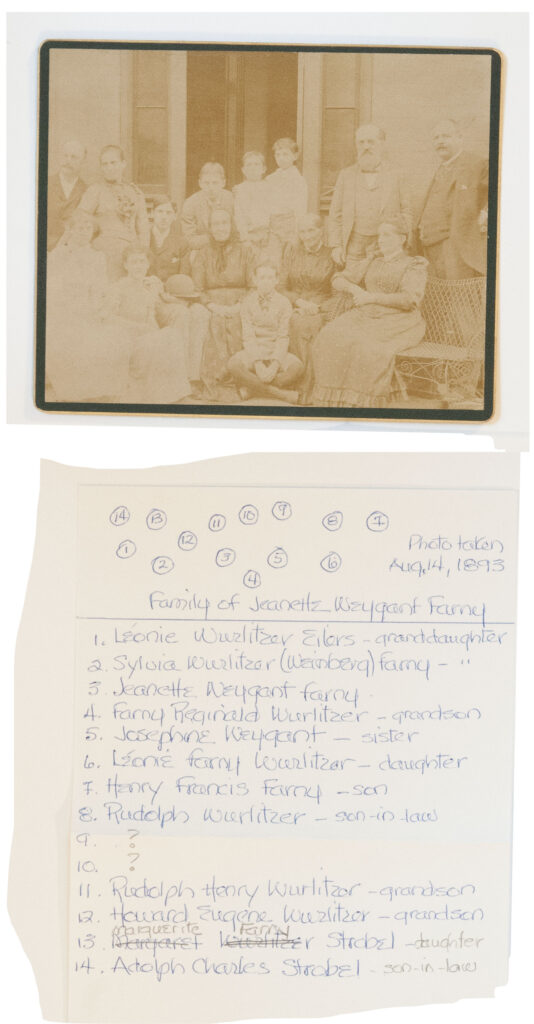 14 13 11 10 9 8 7
12
1 2 3 5 6
4
Photo taken
Aug, 14, 1893
Family of Jeanette Weygant Farny
1. Léonie Wurlitzer Eilers - granddaughter
2. Sylvia Wurlitzer (Weinberg) Farny - "
3. Jeanette Weygant Farny.
4. Farny Reginald Wurlitzer - grandson
5. Josephine Weygant - sister
6. Léonie Farny Wurlitzer - daughter
7. Henry Francis Farny - son
8. Rudolph Wurlitzer - son-in-law
9. ?
10. ?
11. Rudolph Henry Wurlitzer - grandson
12. Howard Eugene Wurlitzer - grandson
Marguerite Farny
13. Margaret Wurlitzer Strobel - daughter
14. Adolph Charles Strobel - son-in-law